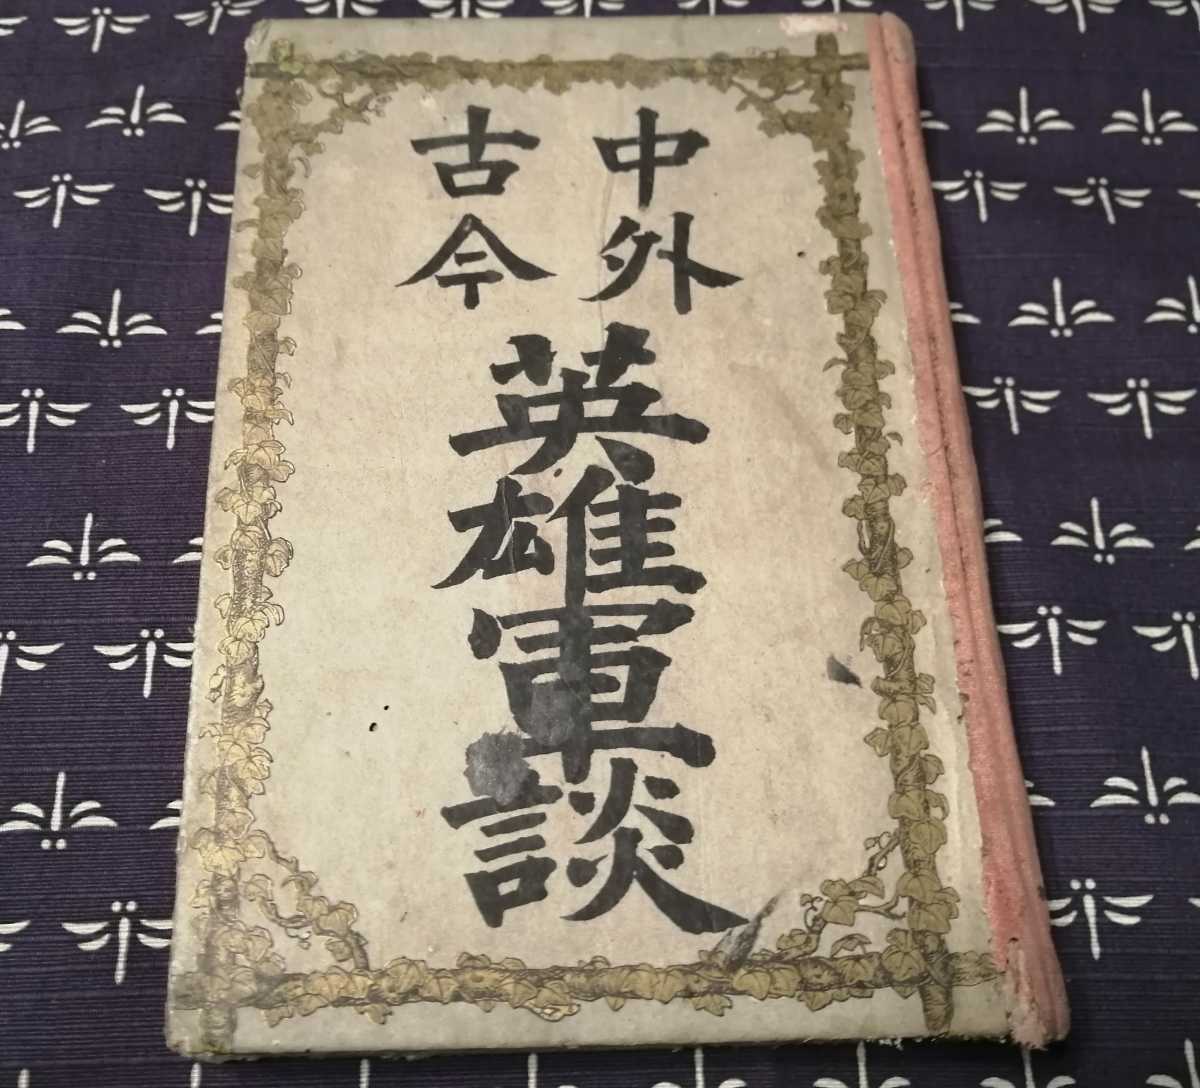 中外
古今
英雄軍談